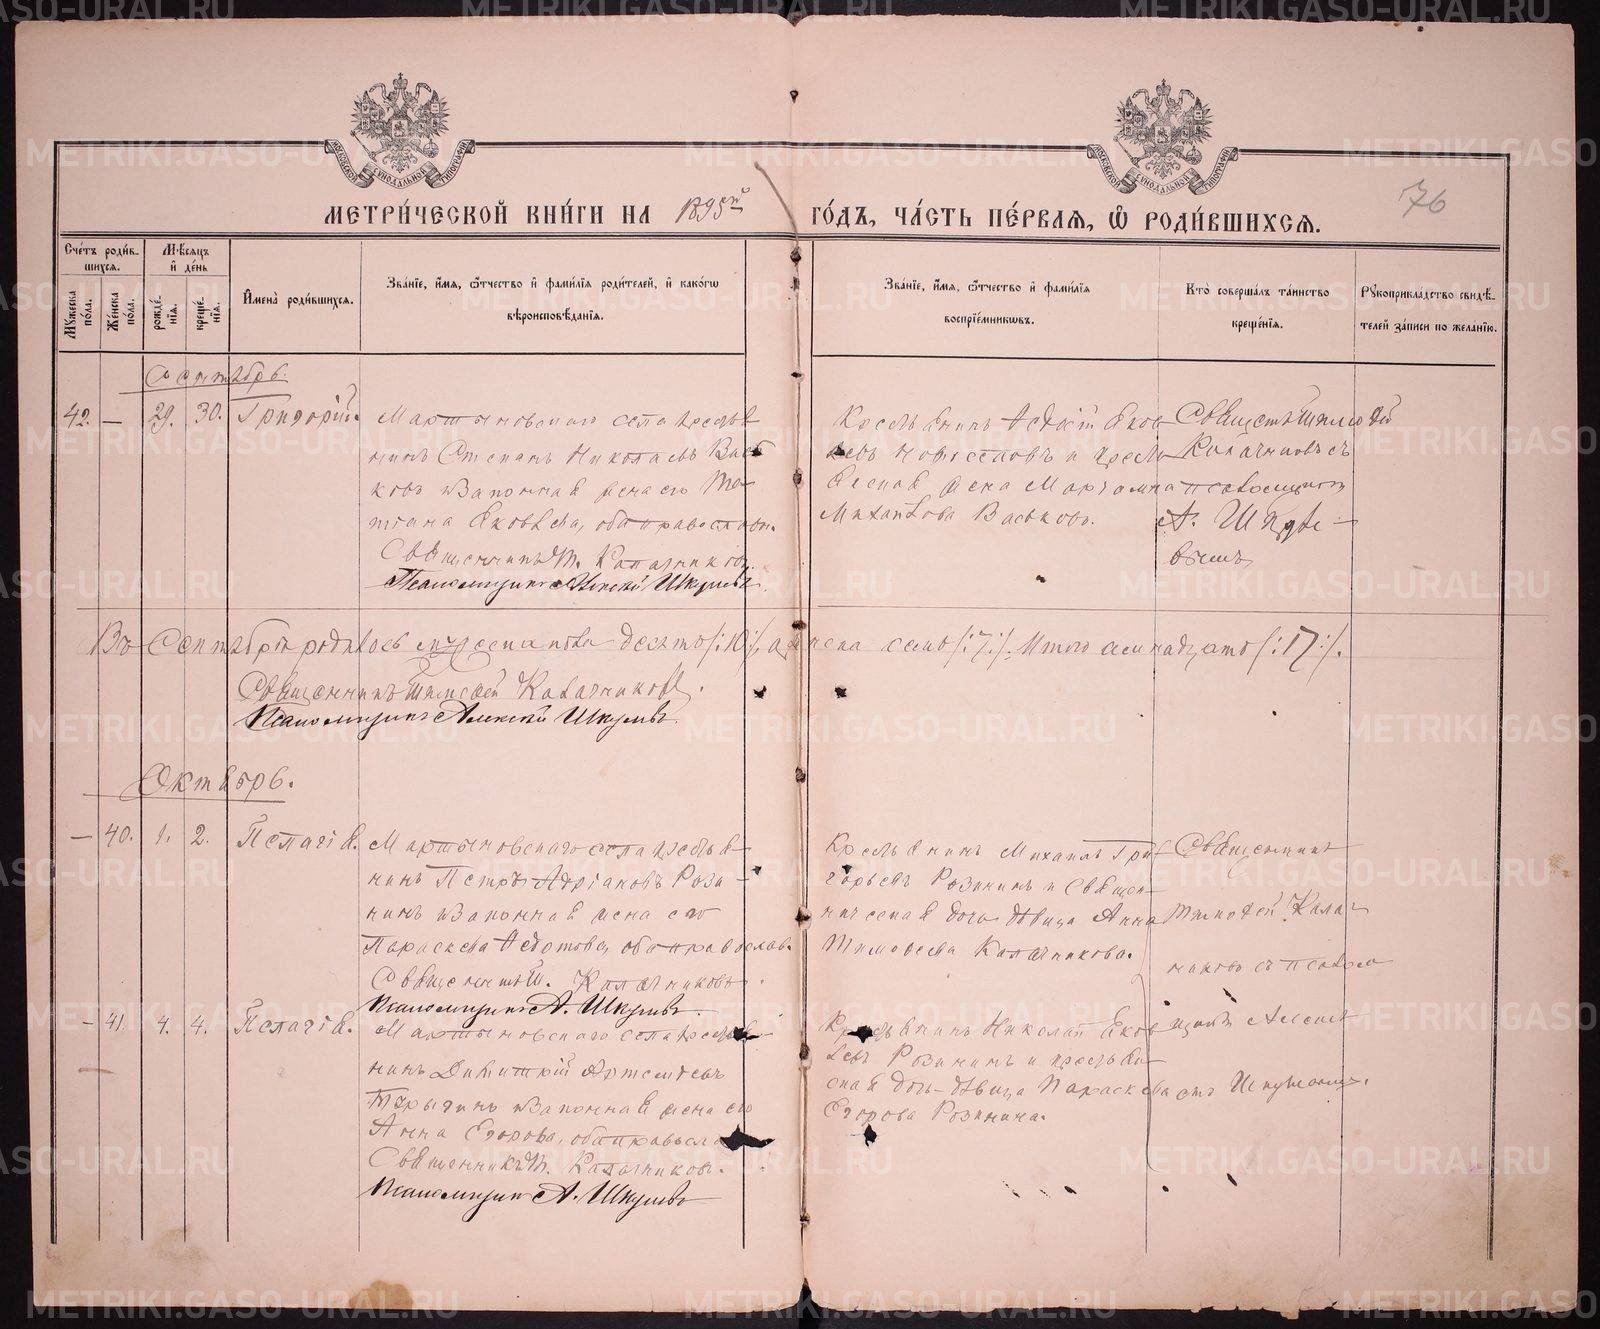 МОСКОВСКОЙ СѴНОДАЛЬНОЙ ТИПОГРАФІИ
МОСКОВСКОЙ СѴНОДАЛЬНОЙ ТИПОГРАФІИ
76
МЕТРИ́ЧЕСКОЙ КНИ́ГИ НА 1895й ГО́ДЪ, ЧА́СТЬ ПЕ́РВАЯ, Ѿ РОДИ́ВШИХСЯ.
Сче́тъ роди́в-
шихся.
Му́жеска по́ла.
Же́нска по́ла.
Мѣ́сяцъ
и҆ де́нь
рожде́-
нія.
креще́-
нія.
И҆мена̀ роди́вшихся.
Зва́ніе, и҆́мя, ѻ҆́тчество и҆ фами́лія роди́телей, и҆ како́гѡ
вѣроисповѣ́данія.
Зва́ніе, и҆́мя, ѻ҆́тчество и҆ фами́лія
воспріе́мниковъ.
Кто̀ соверша́лъ та́инство
креще́нія.
Рꙋкоприкла́дство свидѣ́-
телей за́писи по жела́нію.
Сентябрь.
42. — 29. 30. Григорій.
Мартыновскаго села крестья
нинъ Стефанъ Николаевъ Вась
ковъ и законная жена его Та
тіана Яковлева, оба православн.
Священникъ Т. Калачниковъ.
Псаломщикъ Алексій Шкулевъ.
Крестьянинъ Яков
левъ и кресть
жена
Михайлова Васькова.
Священ Тимофей
Калачниковъ съ
псаломщикомъ
А. Шкуле-
вымъ
Въ Сентябрѣ родилось мужеска пола десять /:10:/, а женска семь /:7:/. Итого семнадцать /:17:/.
Священникъ Тимофей Калачниковъ.
Псаломщикъ Алексій Шкулевъ.
Октябрь.
— 40. 1. 2. Пелагія.
Мартыновскаго села крестья-
нинъ Петръ Адріановъ Рози-
нинъ и законная жена его
Параскева Федотова, оба православ.
Священ. Т. Калачниковъ.
Псаломщикъ А. Шкулевъ.
Крестьянинъ Михаилъ Гри-
горьевъ Розининъ и священ-
ническая дочь дѣвица Анна
Тимофеева Калачникова.
Священникъ
Тимофей Калач
никовъ съ псалом
щикомъ Алексѣ
емъ Шкулевымъ.
— 41. 4. 4. Пелагія.
Мартыновскаго села крестья
нинъ Димитрій Артемьевъ
и законная жена его
Анна Егорова, оба правосла
Священникъ Т. Калачниковъ.
Псаломщикъ А. Шкулевъ
Крестьянинъ Николай Яков
левъ Розининъ и крестьян
ская дочь дѣвица Параскева
Егорова Розинина.
METRIKI.GASO-URAL.RU